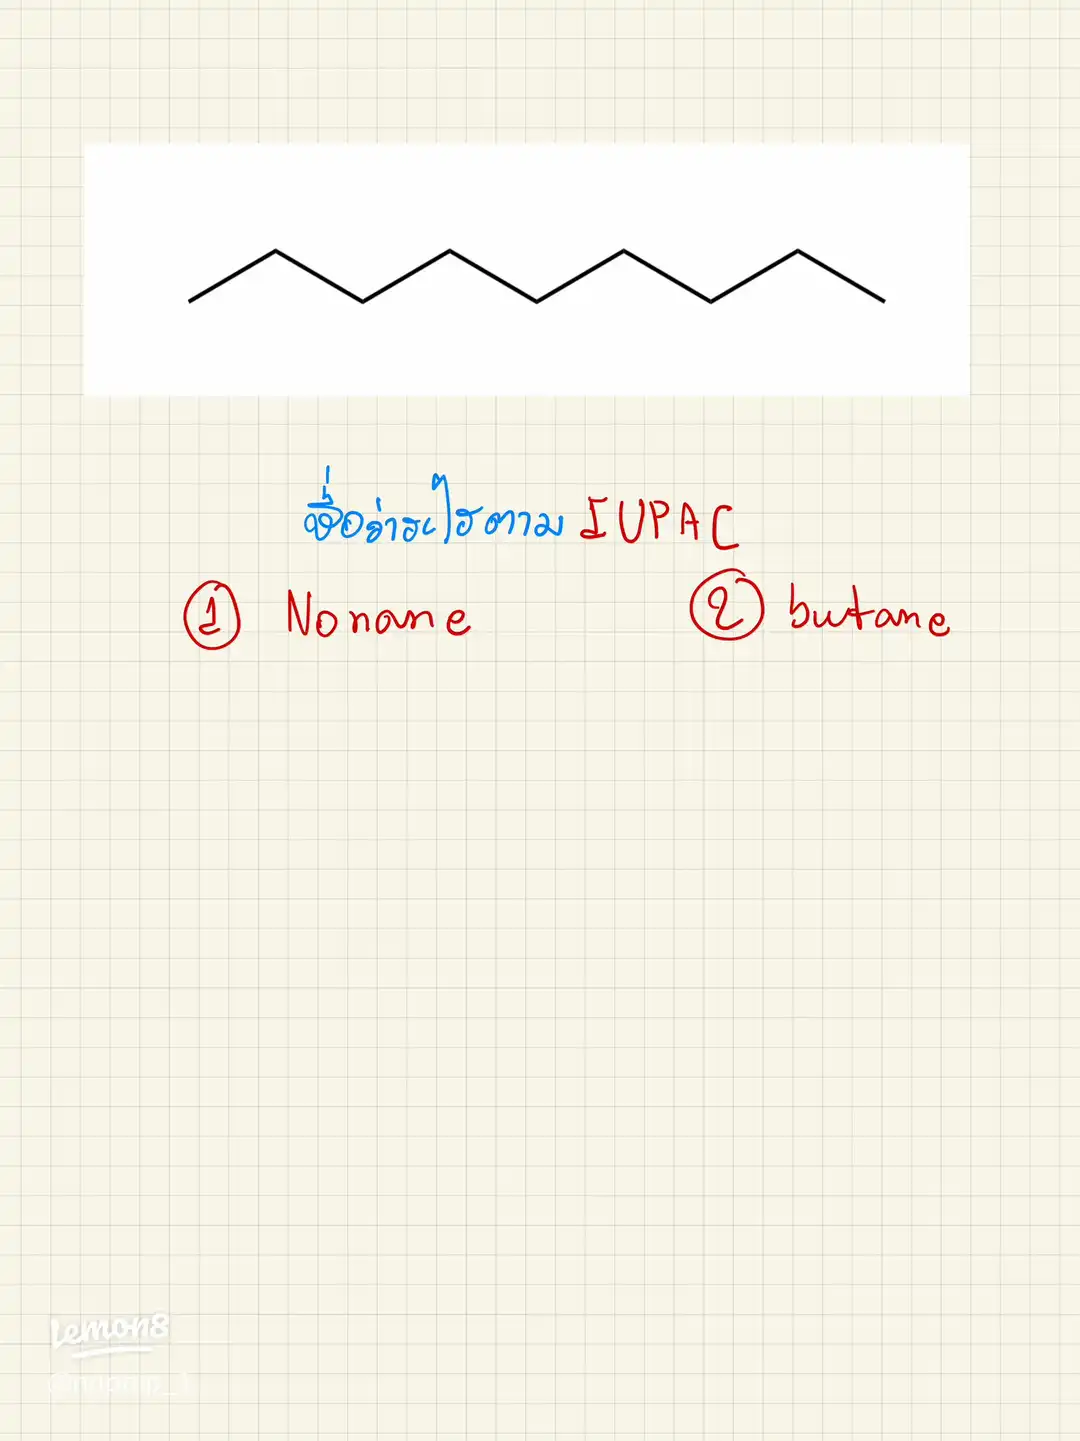 ชื่อว่าอะไรตาม IUPAC
① Nonane ② butane
Lemon8